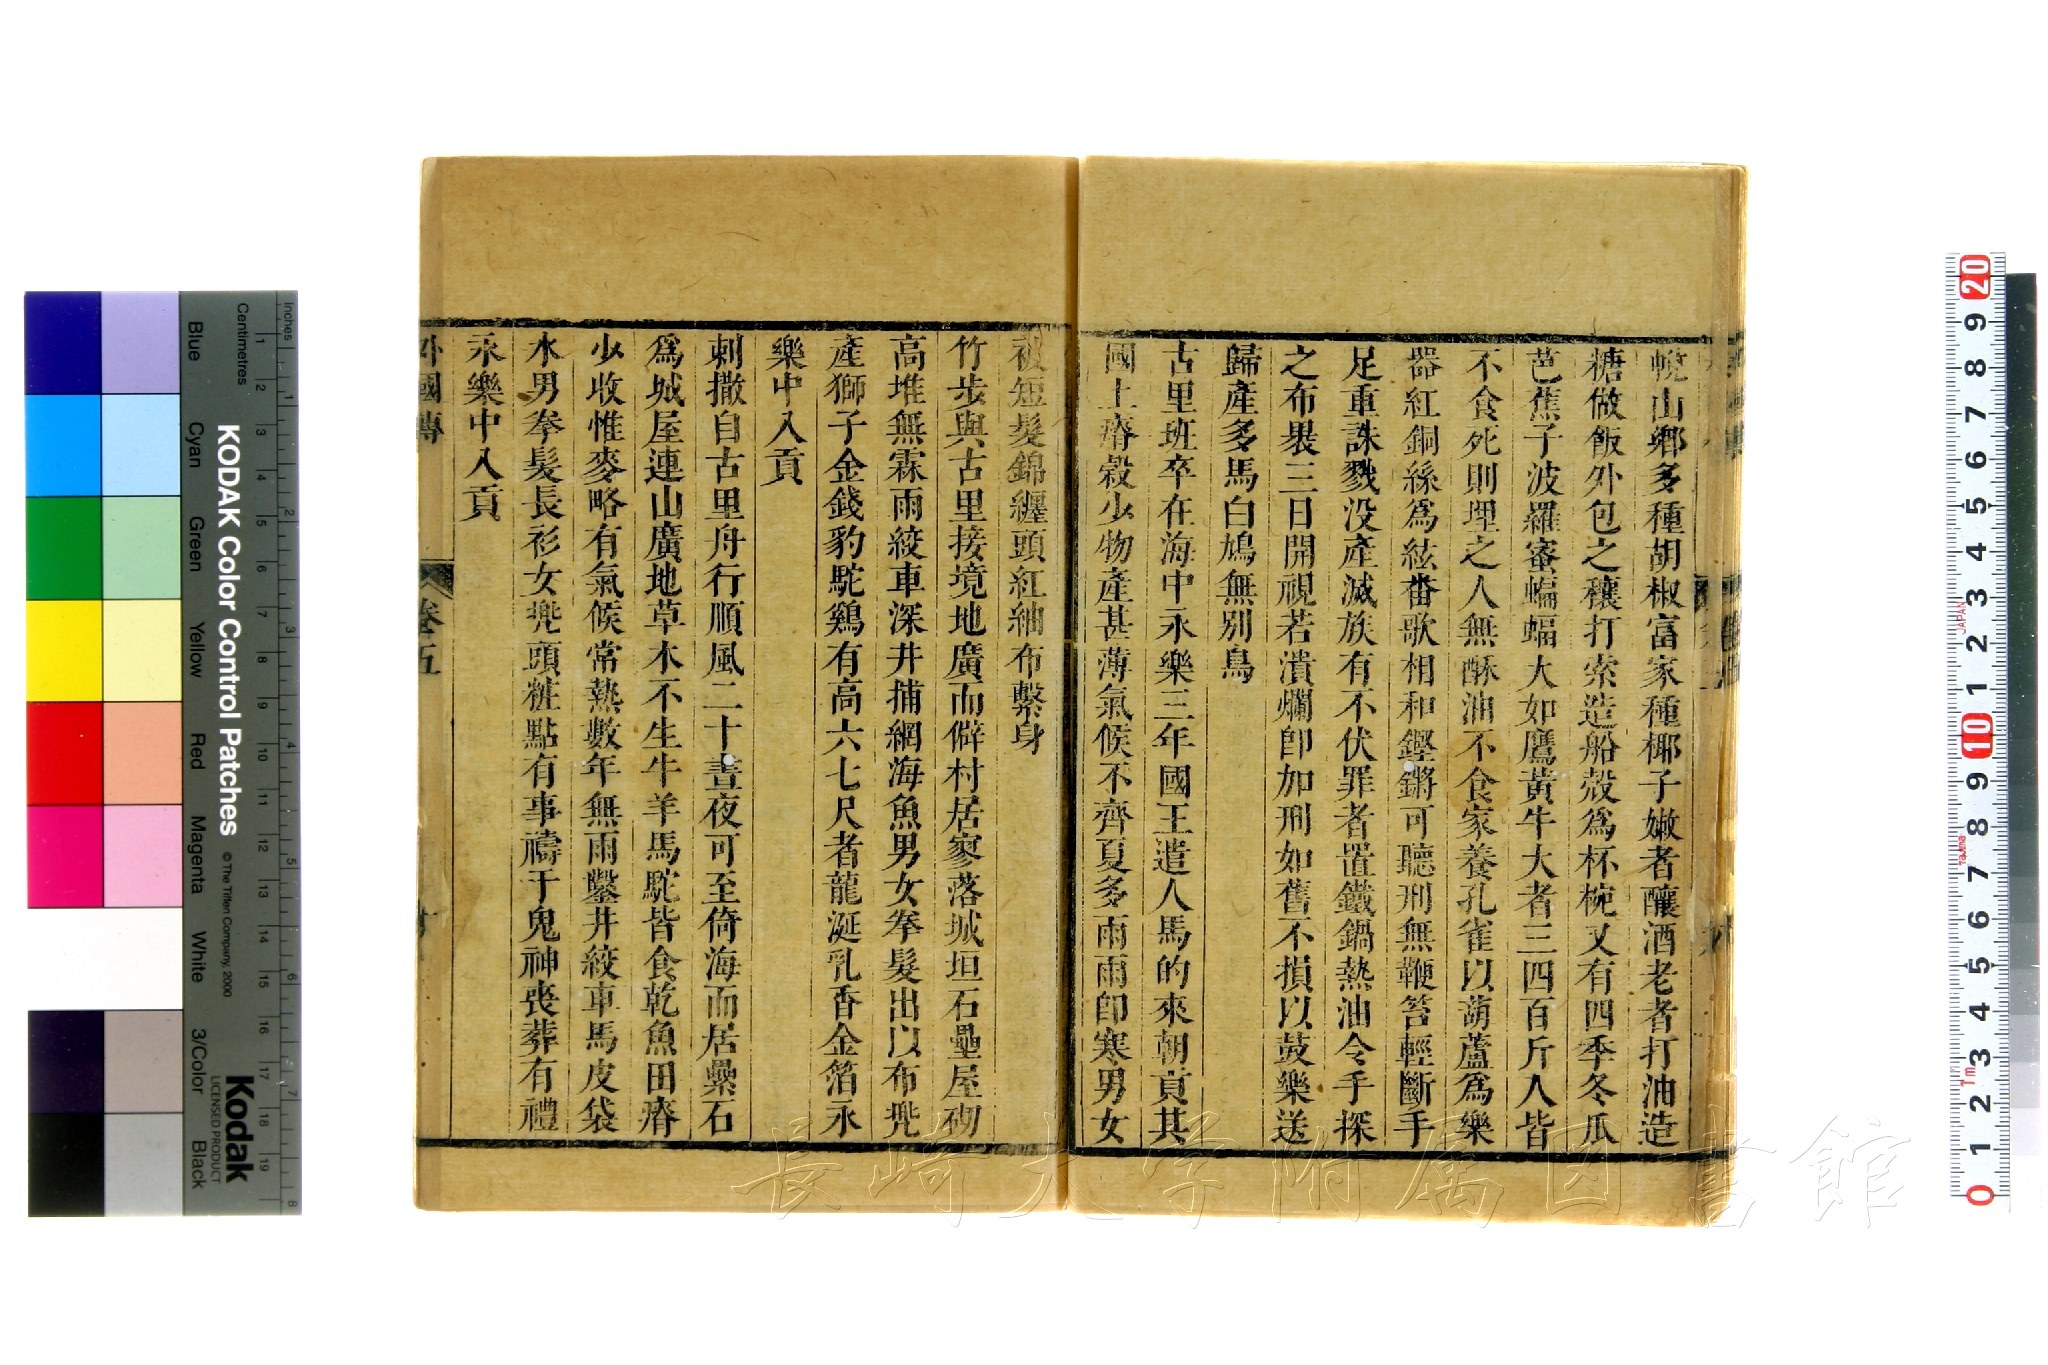 蛻山鄉多種胡椒富家種椰子嫩者釀酒老者打油造
糖做飯外包之穰打索造船殼爲杯椀又有四季冬瓜
芭蕉子波羅蜜蝙蝠大如鷹黃牛大者三四百斤人皆
不食死則埋之人無酥油不食家養孔雀以葫蘆爲樂
器紅銅絲爲絃畨歌相和鏗鏘可聽刑無鞭笞輕斷手
足重誅戮没産滅族有不伏罪者置鐵鍋熱油令手探
之布褁三日開視若潰爛卽加刑如舊不損以鼓樂送
歸產多馬白鳩無別鳥
古里班卒在海中永樂三年國王遣人馬的來朝貢其
國土瘠穀少物產甚薄氣候不齊夏多雨雨卽寒男女
被短髮錦纏頭紅紬布繫身
竹步與古里接境地廣而僻村居寥落城垣石壘屋砌
高堆無霖雨絞車深井捕網海魚男女拳髮出以布兠
產獅子金錢豹駝鷄有高六七尺者龍涎乳香金箔永
樂中入貢
剌撒自古里舟行順風二十晝夜可至倚海而居纍石
爲城屋連山廣地草木不生牛羊馬駝皆食乾魚田瘠
少收惟麥略有氣候常熱數年無雨鑿井絞車馬皮袋
水男拳髮長衫女兠頭粧點有事禱于鬼神喪葬有禮
永樂中入貢
外國傳 卷五
KODAK Color Control Patches
© The Tiffen Company, 2000
Kodak
LICENSED PRODUCT
Inches
Centimetres
Blue Cyan Green Yellow Red Magenta White 3/Color Black
JAPAN
長崎大学附属図書館